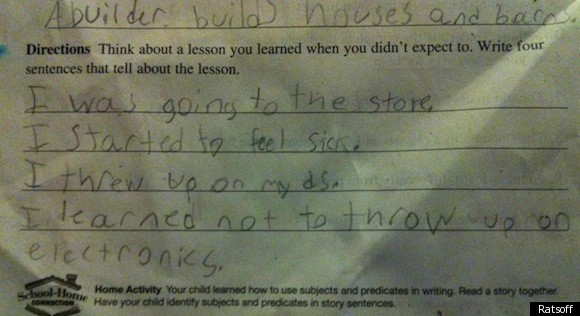 A builder builds houses and barns.
Directions Think about a lesson you learned when you didn't expect to. Write four
sentences that tell about the lesson.
I was going to the store.
I started to feel sick.
I threw up on my ds.
I learned not to throw up on
electronics.
School-Home
CONNECTION
Home Activity Your child learned how to use subjects and predicates in writing. Read a story together.
Have your child identify subjects and predicates in story sentences.
Ratsoff